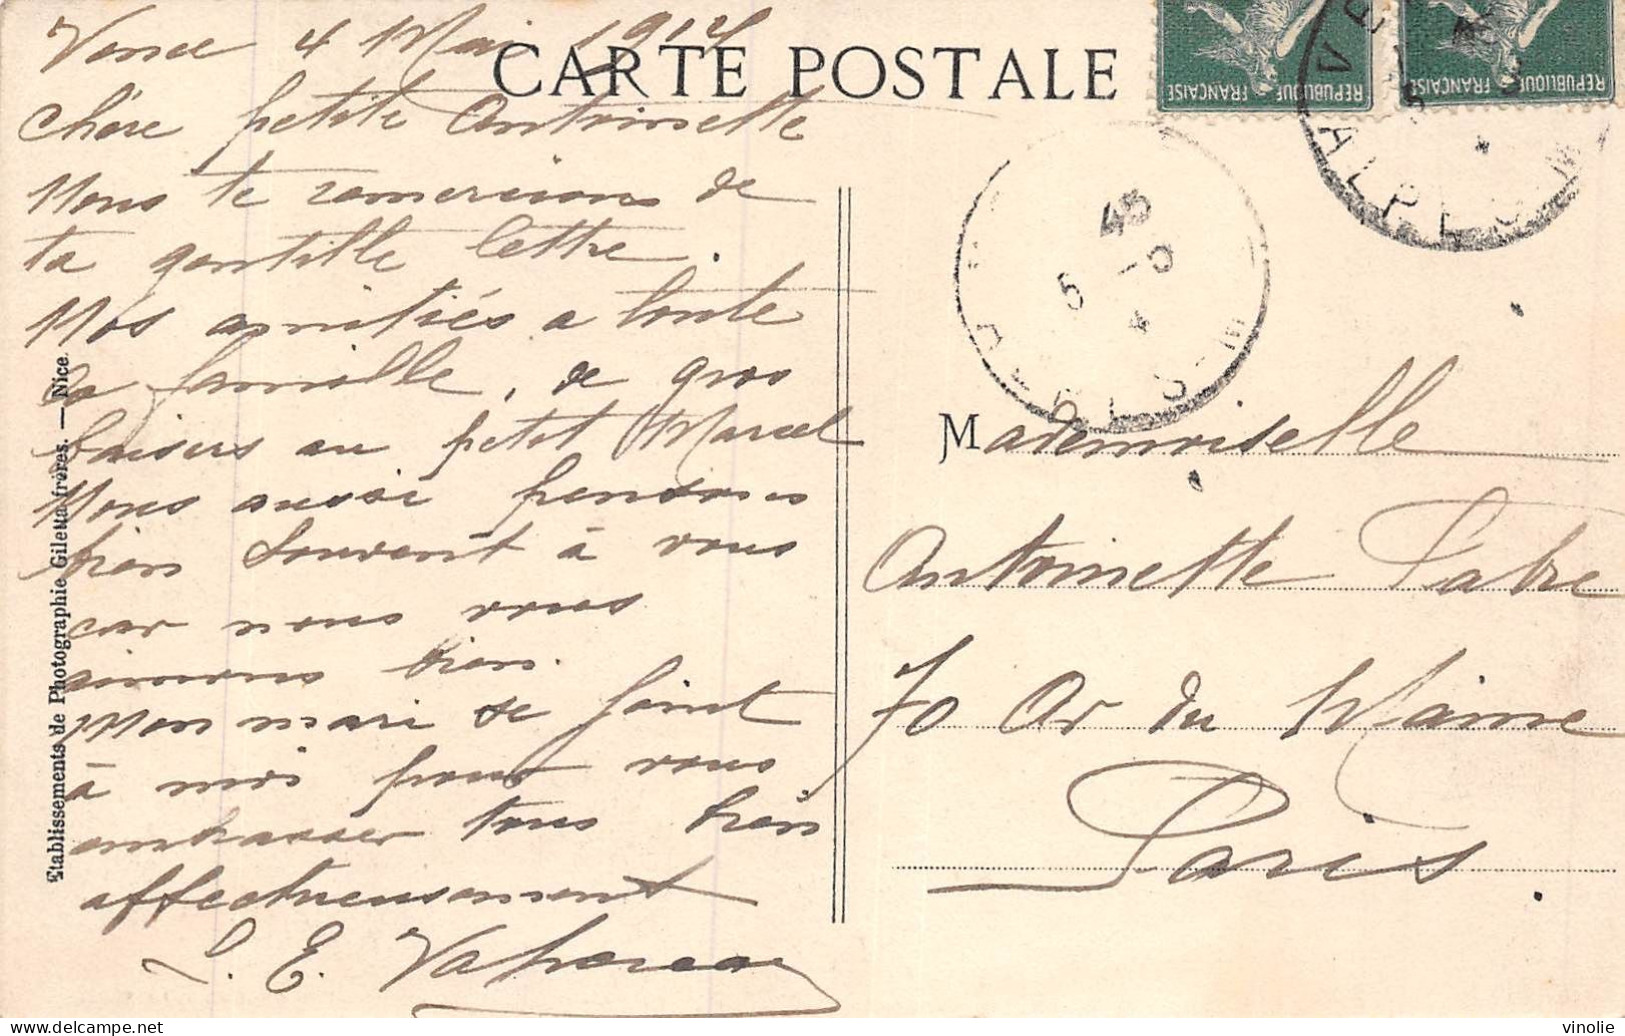 CARTE POSTALE
Vence 4 Mai 1914
Chère petite Antoinette
Nous te remercions de
ta gentille lettre.
Nos amitiés a toute
la famille, de gros
baisers au petit Marcel
Nous aussi pensons
bien souvent à vous
car nous vous
aimons bien.
Mon mari se joint
à moi pour vous
embrasser tous bien
affectueusement
L. E.
Etablissements de Photographie Giletta frères. — Nice.
REPUBLIQUE FRANÇAISE
REPUBLIQUE FRANÇAISE
VE
ALP
M
45
5 - 5
4
Mademoiselle
Antoinette Fabre
70 Av du Maine
Paris.
vinolie